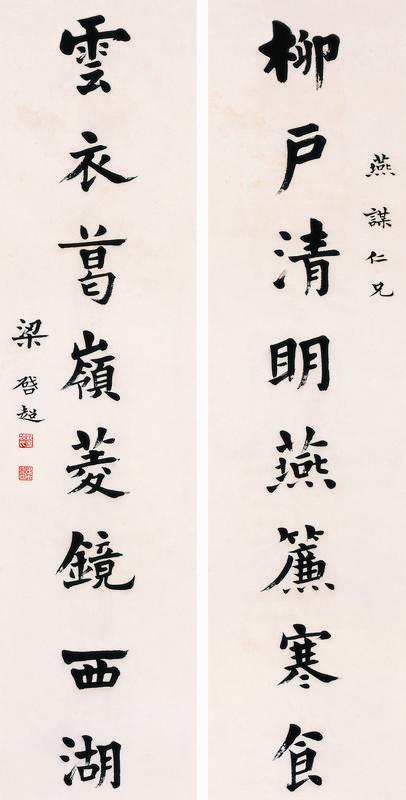 燕謀仁兄
柳戶清明燕簾寒食
雲衣葛嶺菱鏡西湖
梁啟超